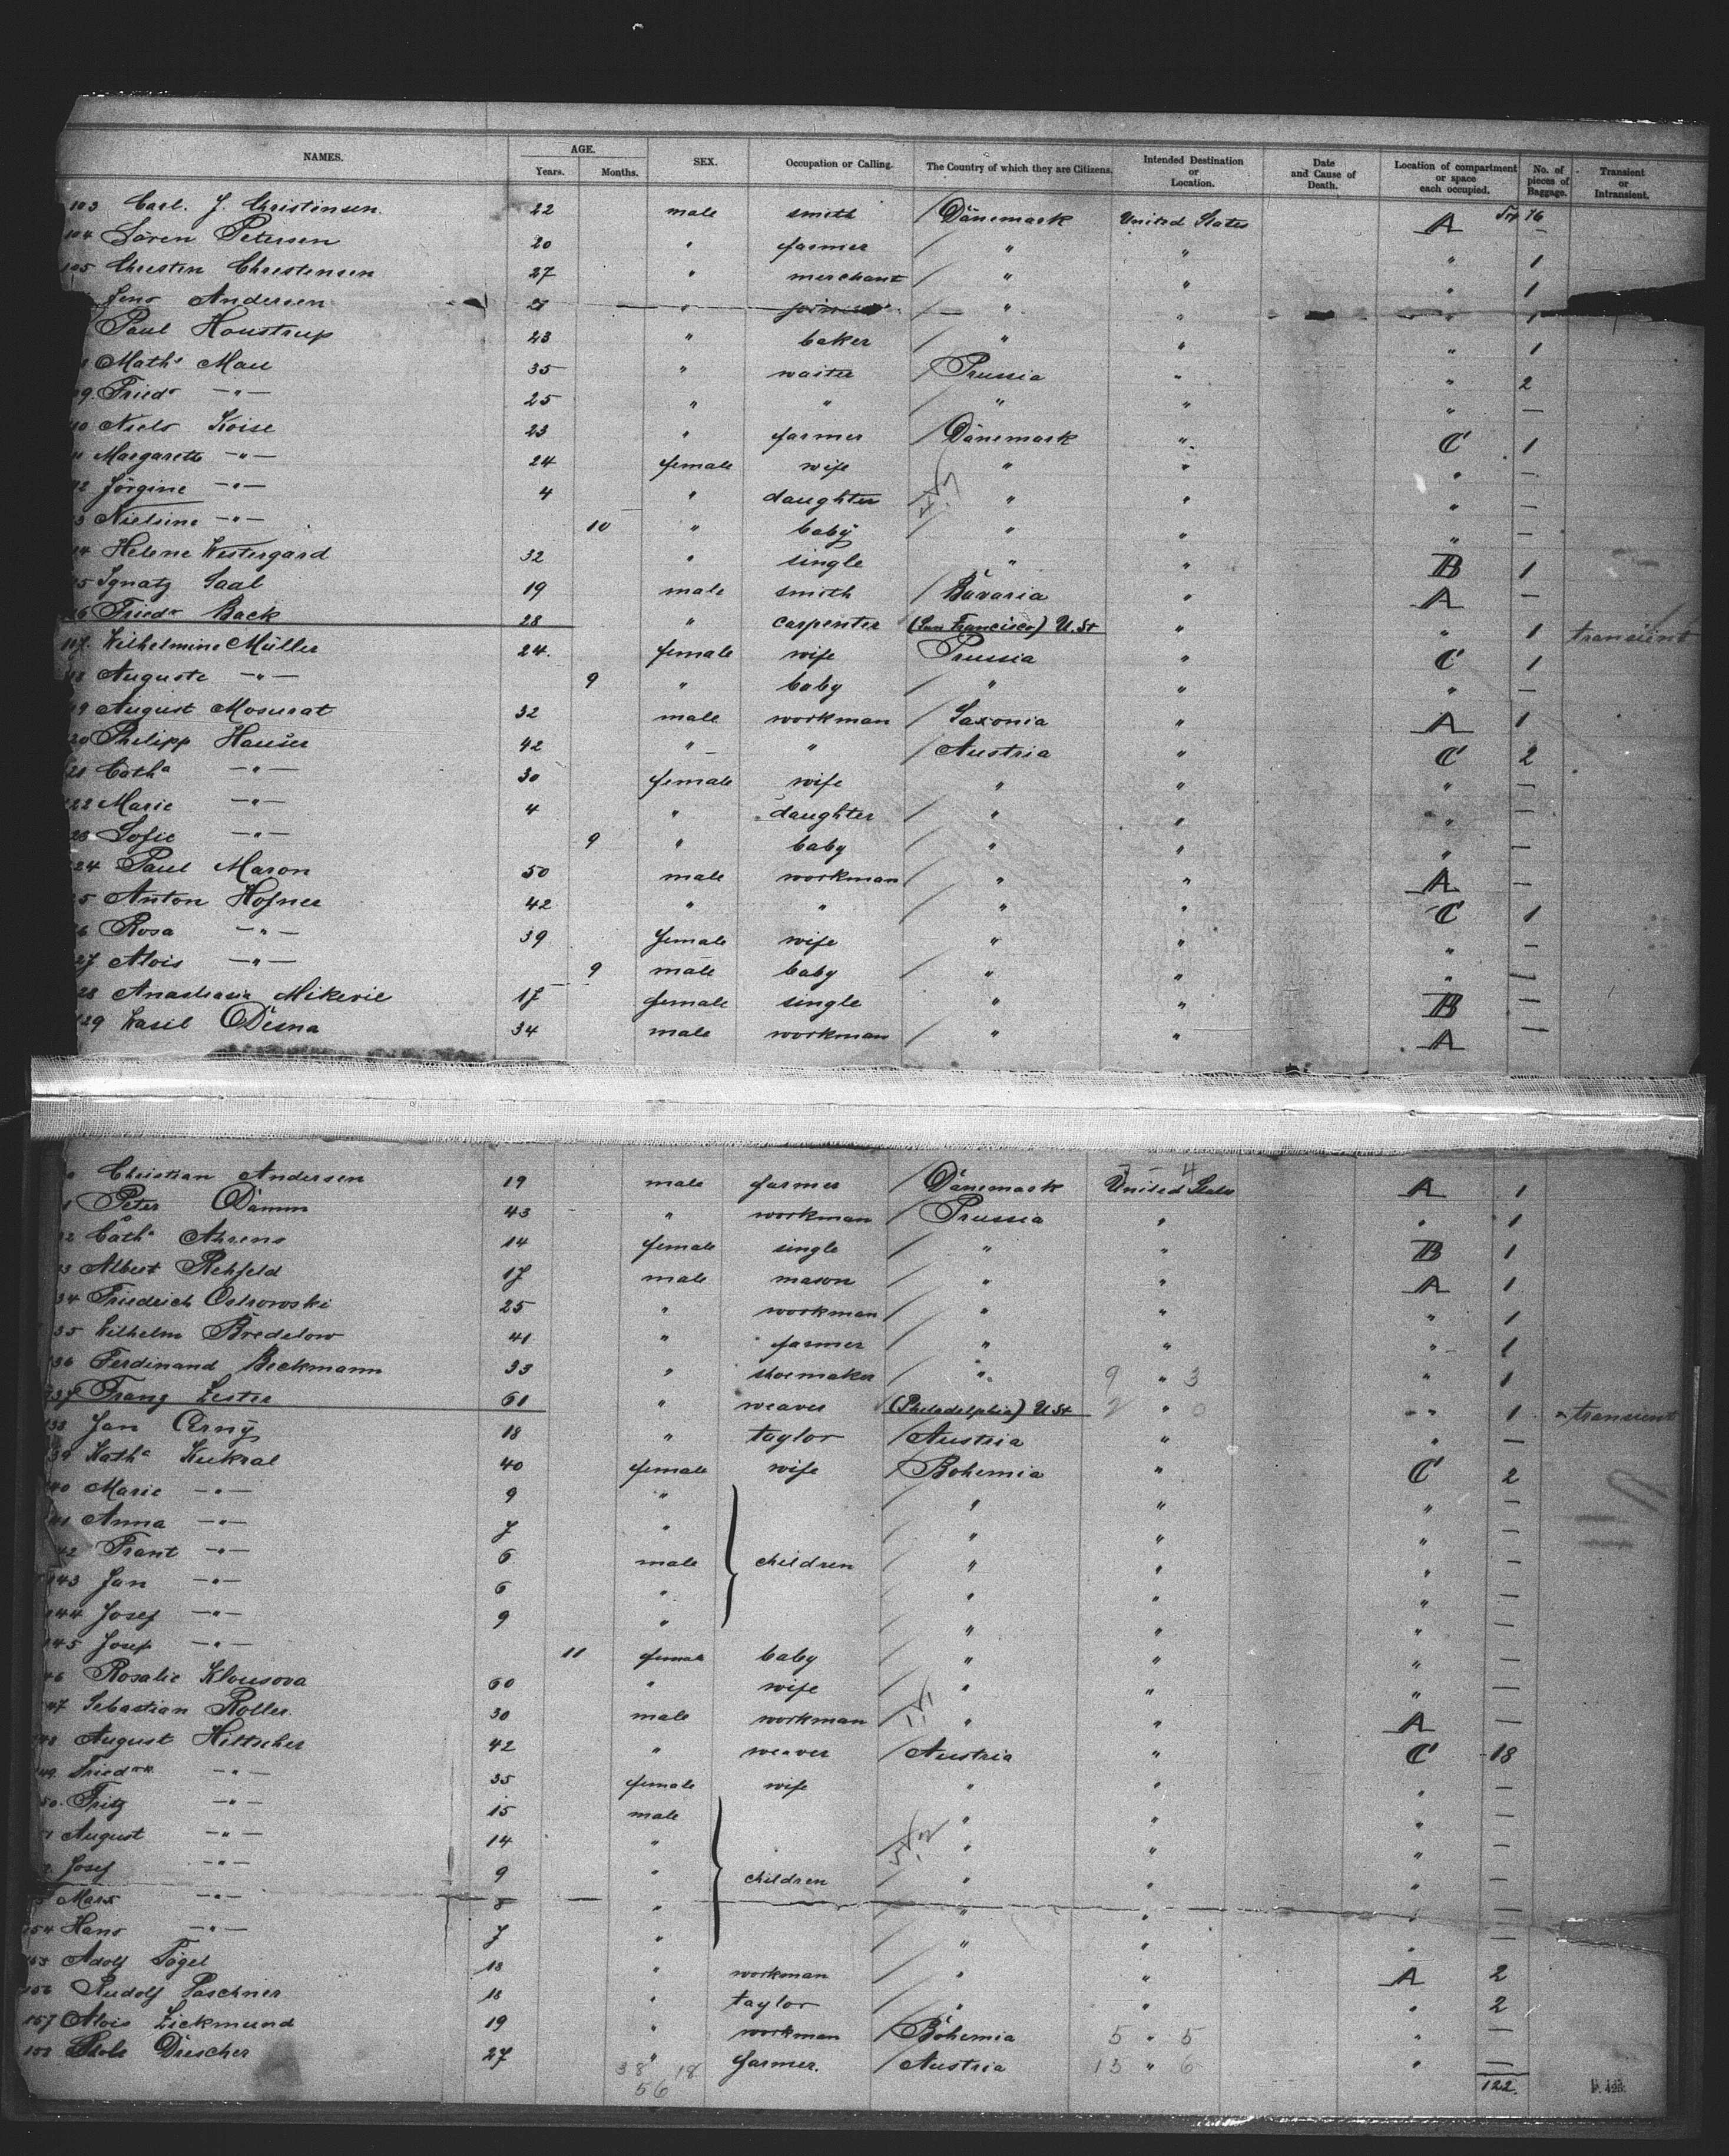 NAMES. AGE. Years. Months. SEX. Occupation or Calling. The Country of which they are Citizens. Intended Destination or Location. Date and Cause of Death. Location of compartment or space each occupied. No. of pieces of Baggage. Transient or Intransient.
103 Carl. J. Christinsen 22 male smith Dänemark United States A –
104 Sören Petersen 20 " farmer " " " 1
105 Christen Christensen 27 " merchant " " " 1
Jens Andersen 27 " " " " 1
Paul Houstrup 23 " baker " " " 1
Maths Mau 35 " waiter Prussia " " 2
9. Friedr —"— 25 " " " " " —
10 Niels Koise 23 " farmer Dänemark " C 1
Margarethe —"— 24 female wife " " " —
12 Jörgine —"— 4 " daughter " " " —
3 Nielsine —"— 10 " baby " " " —
14 Helene Westergard 32 " single " " B 1
15 Ignatz Saal 19 male smith Bavaria " A —
16 Friedr Back 28 " carpenter (San Francisco) U. St " " 1 transient
117. Wilhelmine Müller 24. female wife Prussia " C 1
18 Auguste —"— 9 " baby " " " —
19 August Mosurat 32 male workman Saxonia " A 1
20 Philipp Hauser 42 " " Austria " C 2
21 Catha —"— 30 female wife " " " —
122 Marie —"— 4 " daughter " " " —
23 Sofie —"— 9 " baby " " " —
24 Paul Maron 50 male workman " " A —
5 Anton Hofner 42 " " " " C 1
6 Rosa —"— 39 female wife " " " —
27 Alois —"— 9 male baby " " " —
28 Anastasia Mikerie 17 female single " " B —
129 Wasil Desna 34 male workman " " A —
Christian Andersen 19 male farmer Dänemark United States A 1
1 Peter Damm 43 " workman Prussia " " 1
2 Catha Ahrens 14 female single " " B 1
3 Albert Rehfeld 17 male mason " " A 1
34 Friedrich Ostrowski 25 " workman " " " 1
35 Wilhelm Bredelow 41 " farmer " " " 1
36 Ferdinand Beckmann 33 " shoemaker " 9 " 3 " 1
137 Franz Lester 61 " weaver (Philadelphia) U. St 2 " 0 " 1 transient
138 Jan Cerny 18 " taylor Austria " " —
39 Katha Kukral 40 female wife Bohemia " C 2
40 Marie —"— 9 " " " " —
41 Anna —"— 7 " " " " —
42 Frant —"— 6 male children " " " —
143 Jan —"— 6 " " " " —
144 Josef —"— 9 " " " " —
145 Josef —"— 11 female baby " " " —
46 Rosalie Klousova 60 " wife " " " —
47 Sebastian Roller 30 male workman " " A —
148 August Hittscher 42 " weaver Austria " C 18
49. —"— 35 female wife " " " —
50. Fritz —"— 15 male " " " —
1 August —"— 14 " " " " —
Josef —"— 9 " children " " " —
Marx —"— 8 " " " " —
154 Hans —"— 7 " " " " —
155 Adolf Pögel 18 " workman " " A 2
156 Rudolf Paschner 18 " taylor " " " 2
157 Alois Zickmund 19 " workman Bohemia 5 " 5 " —
158 Drescher 27 " farmer. Austria 13 " 6 " —
38 18
56
122.